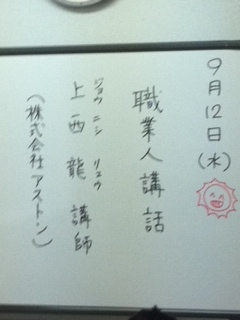 9月12日(水)
職業人講話
ジョウ ニシ リュウ
上西 龍 講師
(株式会社アストン)